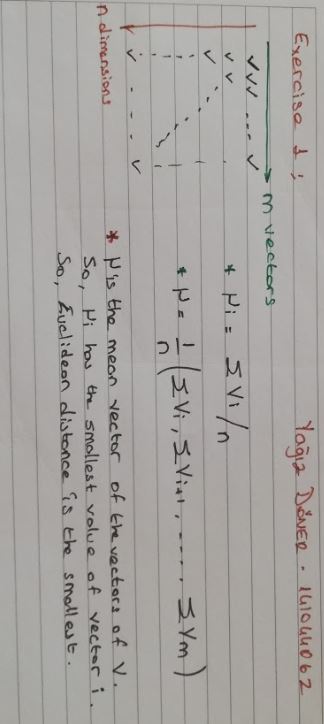 Exercise 1 : Yağız DÖNER - 141044062
m vectors
✓✓✓ --- ✓
✓ ✓
✓
✓ - - - ✓
n dimensions
* μi = ΣVi/n
* μ = 1/n (ΣVi, ΣVi+1, ..... ΣVm)
* μ is the mean vector of the vectors of V.
So, μi has the smallest value of vector i.
So, Euclidean distance is the smallest.